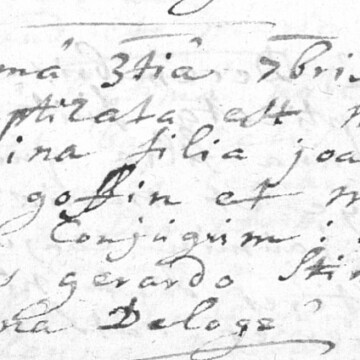 mâ 3tiâ 7bris
ptizata est
ina filia joa
goffin et m
Conjugum :
gerardo Sti
na Deloge